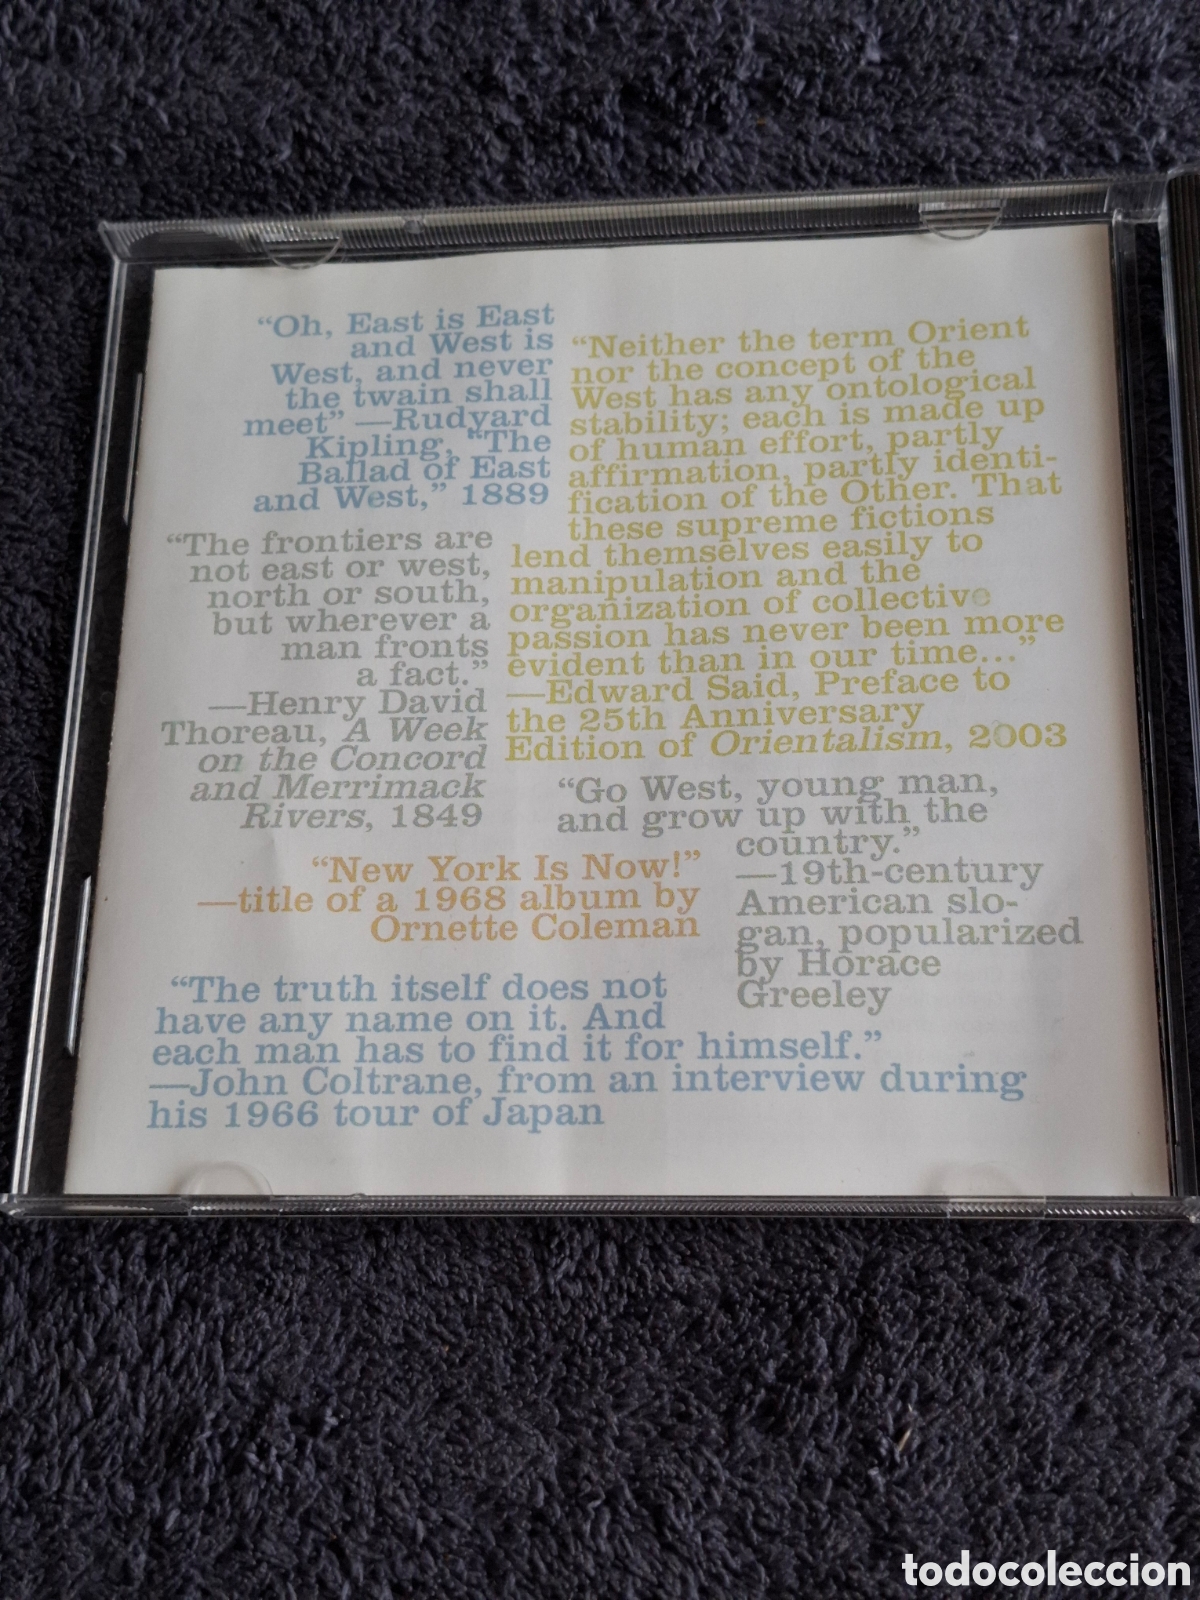 “Oh, East is East
and West is
West, and never
the twain shall
meet” —Rudyard
Kipling, “The
Ballad of East
and West,” 1889
“Neither the term Orient
nor the concept of the
West has any ontological
stability; each is made up
of human effort, partly
affirmation, partly identi-
fication of the Other. That
these supreme fictions
lend themselves easily to
manipulation and the
organization of collective
passion has never been more
evident than in our time...”
—Edward Said, Preface to
the 25th Anniversary
Edition of Orientalism, 2003
“The frontiers are
not east or west,
north or south,
but wherever a
man fronts
a fact.”
—Henry David
Thoreau, A Week
on the Concord
and Merrimack
Rivers, 1849
“Go West, young man,
and grow up with the
country.”
—19th-century
American slo-
gan, popularized
by Horace
Greeley
“New York Is Now!”
—title of a 1968 album by
Ornette Coleman
“The truth itself does not
have any name on it. And
each man has to find it for himself.”
—John Coltrane, from an interview during
his 1966 tour of Japan
todocoleccion